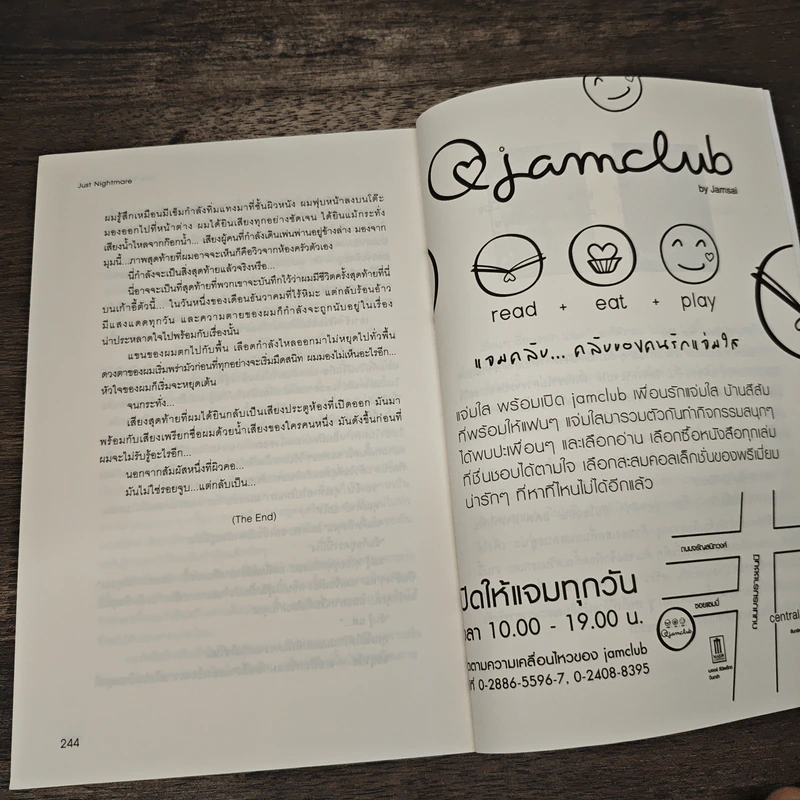 Just Nightmare
ผมรู้สึกเหมือนมีเข็มกำลังทิ่มแทงมาที่ชั้นผิวหนัง ผมฟุบหน้าลงบนโต๊ะ
มองออกไปที่หน้าต่าง ผมได้ยินเสียงทุกอย่างชัดเจน ได้ยินแม้กระทั่ง
เสียงน้ำไหลจากก๊อกน้ำ... เสียงผู้คนที่กำลังเดินเพ่นพ่านอยู่ข้างล่าง มองจาก
มุมนี้...ภาพสุดท้ายที่ผมอาจจะเห็นก็คือวิวจากห้องครัวตัวเอง
นี่กำลังจะเป็นสิ่งสุดท้ายแล้วจริงหรือ...
นี่อาจจะเป็นที่สุดท้ายที่พวกเขาจะบันทึกไว้ว่าผมมีชีวิตครั้งสุดท้ายที่นี่
บนเก้าอี้ตัวนี้... ในวันหนึ่งของเดือนธันวาคมที่ไร้หิมะ แต่กลับร้อนอ้าว
มีแสงแดดทุกวัน และความตายของผมก็กำลังจะถูกนับอยู่ในเรื่อง
น่าประหลาดใจไปพร้อมกับเรื่องนั้น
แขนของผมตกไปกับพื้น เลือดกำลังไหลออกมาไม่หยุดไปทั่วพื้น
ดวงตาของผมเริ่มพร่ามัวก่อนที่ทุกอย่างจะเริ่มมืดสนิท ผมมองไม่เห็นอะไรอีก...
หัวใจของผมก็เริ่มจะหยุดเต้น
จนกระทั่ง...
เสียงสุดท้ายที่ผมได้ยินกลับเป็นเสียงประตูห้องที่เปิดออก มันมา
พร้อมกับเสียงเพรียกชื่อผมด้วยน้ำเสียงของใครคนหนึ่ง มันดังขึ้นก่อนที่
ผมจะไม่รับรู้อะไรอีก...
นอกจากสัมผัสหนึ่งที่ผิวคอ...
มันไม่ใช่รอยจูบ...แต่กลับเป็น...
(The End)
244
@jamclub
by Jamsai
read + eat + play
แจมคลับ... คลับของคนรักแจ่มใส
แจ่มใส พร้อมเปิด jamclub เพื่อนรักแจ่มใส บ้านสีส้ม
ที่พร้อมให้แฟนๆ แจ่มใสมารวมตัวกันทำกิจกรรมสนุกๆ
ได้พบปะเพื่อนๆ และเลือกอ่าน เลือกซื้อหนังสือทุกเล่ม
ที่ชื่นชอบได้ตามใจ เลือกสะสมคอลเล็กชั่นของพรีเมี่ยม
น่ารักๆ ที่หาที่ไหนไม่ได้อีกแล้ว
ถนนจรัญสนิทวงศ์
ปิดให้แจมทุกวัน
วลา 10.00 - 19.00 น.
ซอยแฮมมี่
@jamclub
central
ตามความเคลื่อนไหวของ jamclub
ที่ 0-2886-5596-7, 0-2408-8395